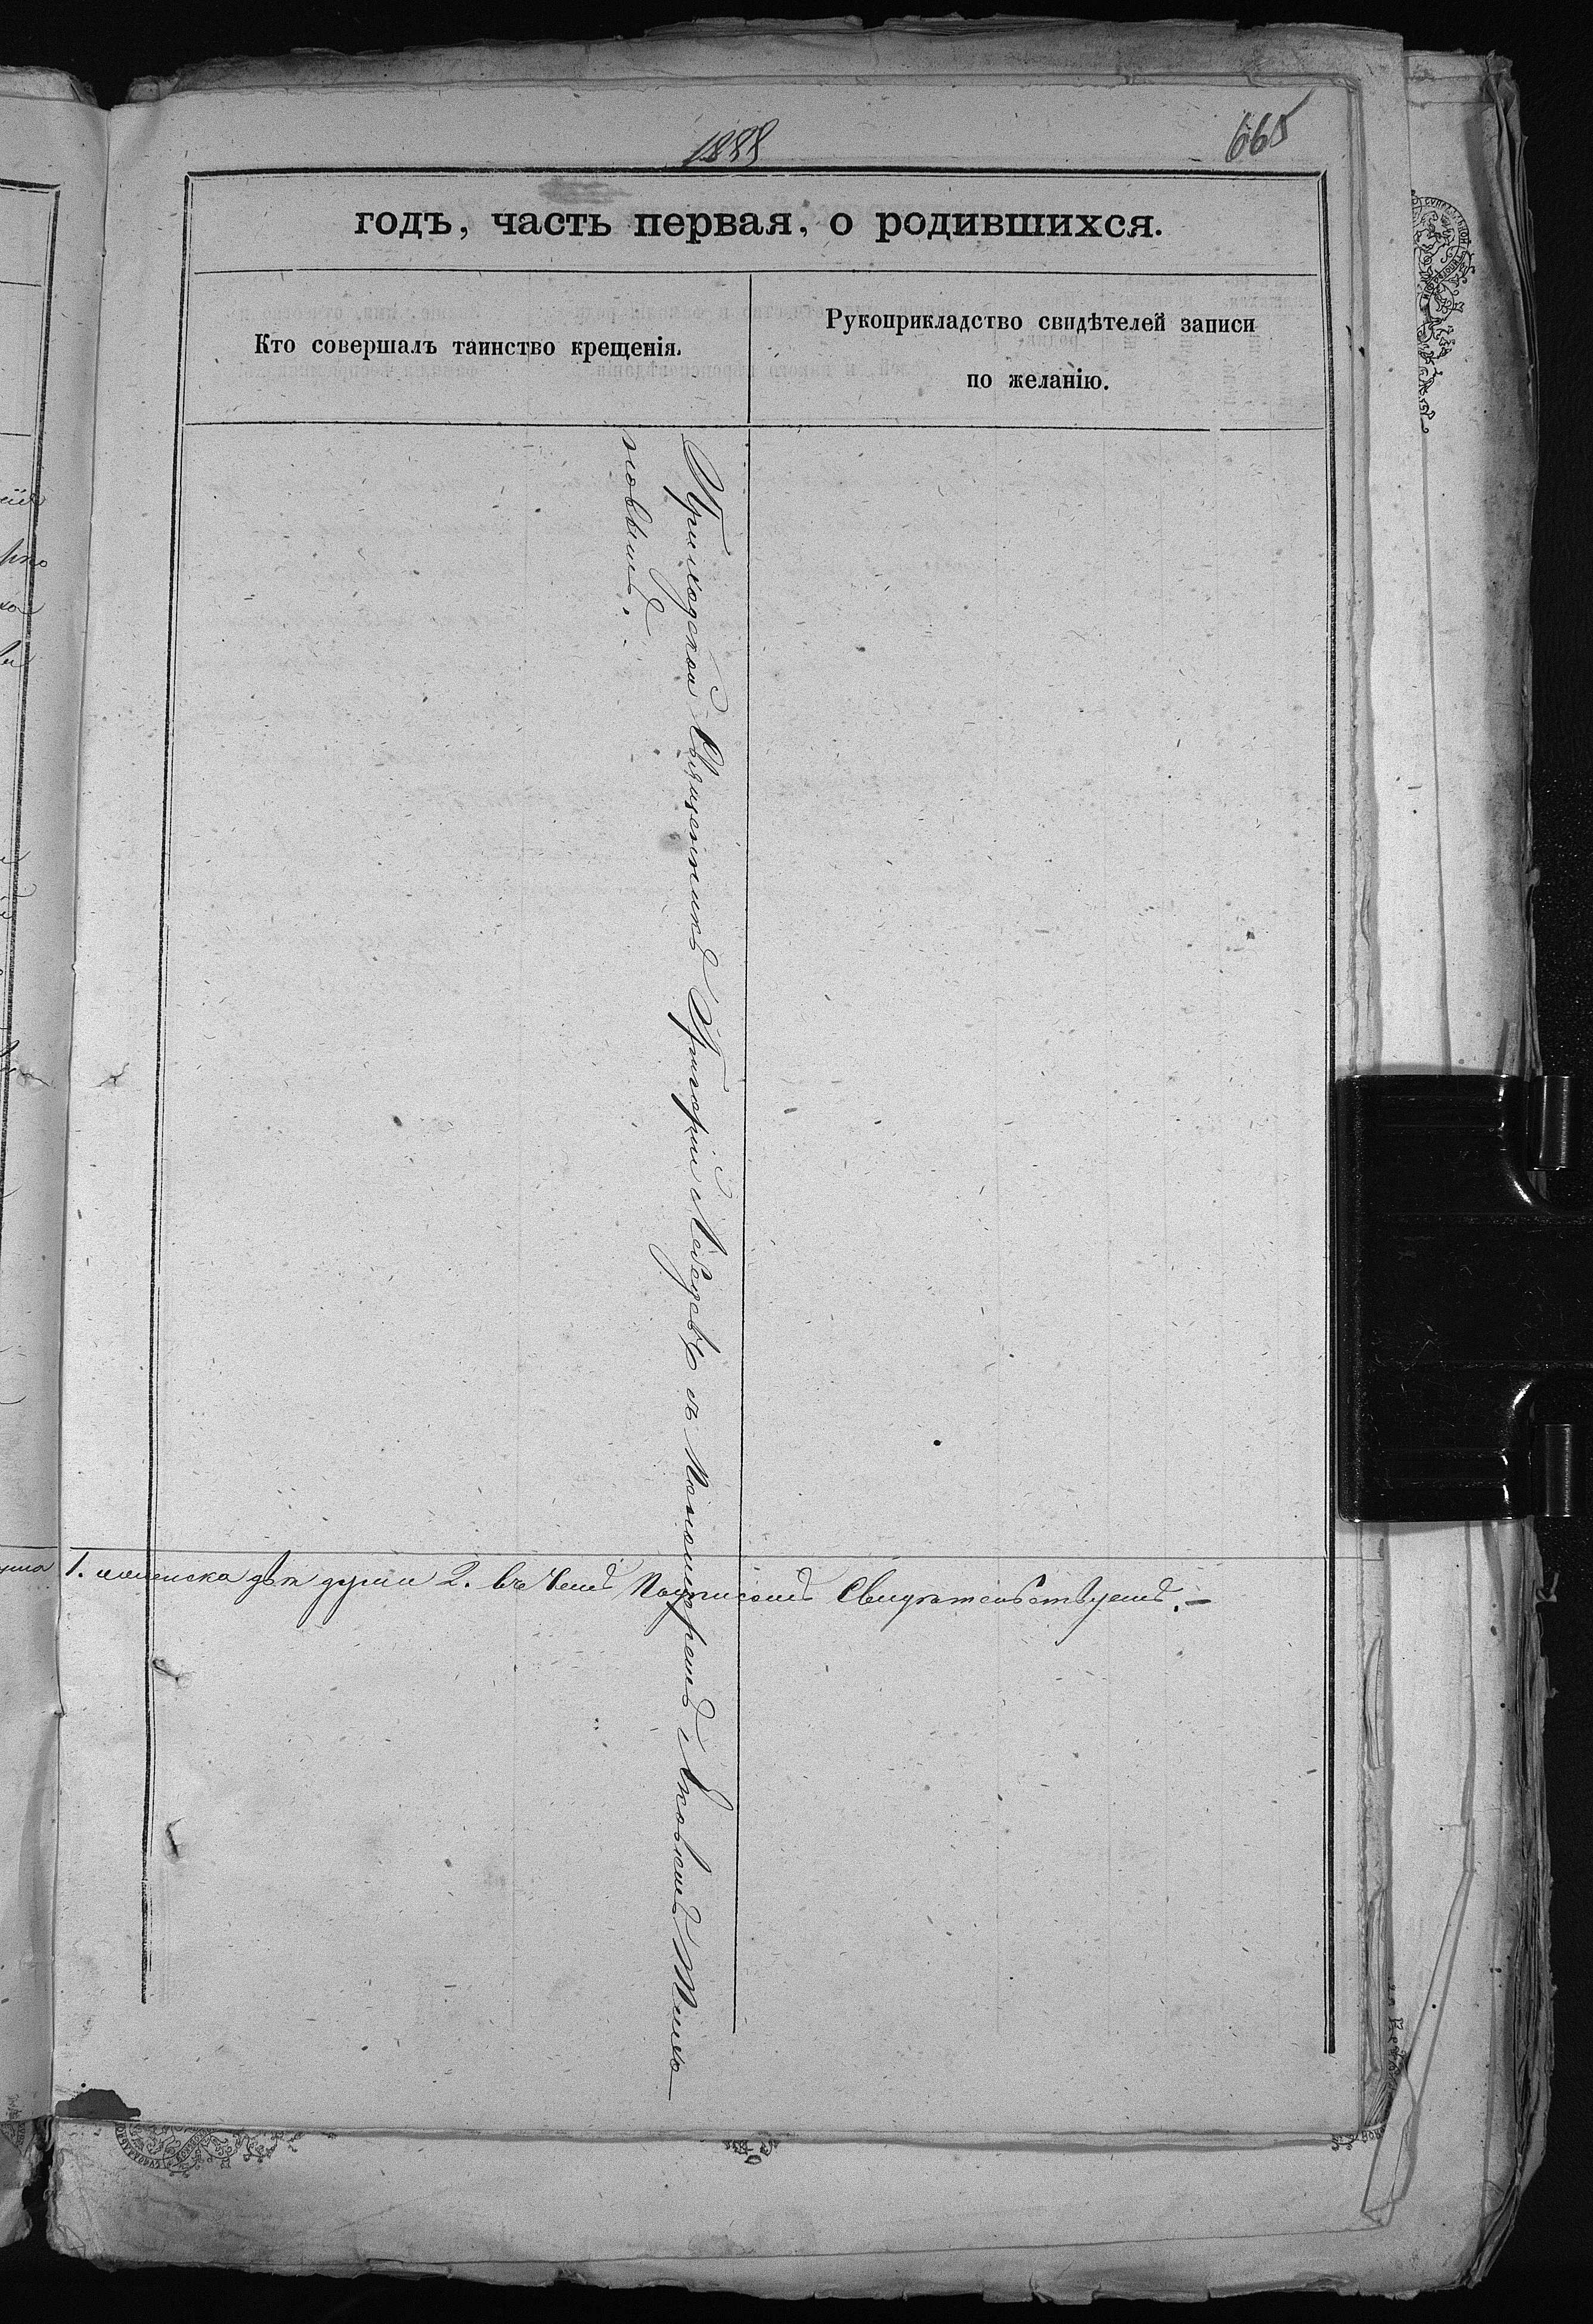 1888
665
годъ, часть первая, о родившихся.
Кто совершалъ таинство крещенія.
Рукоприкладство свидѣтелей записи
по желанію.
Приходской Священникъ Григорій Лебедевъ съ Пономаремъ Яковомъ Тимо
новымъ.
1. женска две души 2. въ чемъ Подписомъ Свидѣтельствуемъ. —